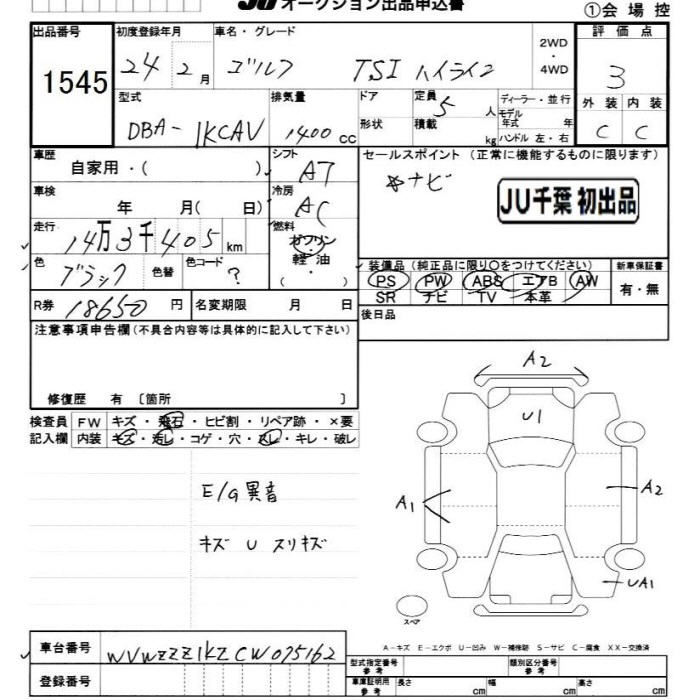 JU オークション出品申込書
①会場控
出品番号 初度登録年月 車名・グレード 2WD・4WD 評価点
1545 24 2月 ゴルフ TSI ハイライン 3
型式 排気量 ドア 定員 5人 ディーラー・並行 外装 内装
DBA-1KCAV 1400cc 形状 積載 kg モデル年式 年 C C
ハンドル 左・右
車歴 自家用・( ) シフト AT セールスポイント (正常に機能するものに限ります)
車検 年 月( 日) 冷房 AC ナビ JU千葉 初出品
走行 14万3千405km 燃料 ガソリン・軽油・( )
色 ブラック 色替 色コード ? 装備品(純正品に限り〇をつけてください) 新車保証書
PS PW ABS エアB AW 有・無
SR ナビ TV 本革
R券 18650円 名変期限 月 日 後日品
注意事項申告欄(不具合内容等は具体的に記入して下さい)
修復歴 有 〔箇所 〕
検査員記入欄 FW キズ・飛石・ヒビ割・リペア跡・×要
内装 キズ・汚レ・コゲ・穴・スレ・キレ・破レ
E/G異音
キズ U スリキズ
A2
U1
A1
A2
UA1
スペア
A-キズ E-エクボ U-凹み W-補修跡 S-サビ C-腐食 XX-交換済
車台番号 WVWZZZ1KZCW075162
型式指定番号 参考 類別区分番号 参考
登録番号 車庫証明用 参考 長さ cm 幅 cm 高さ cm